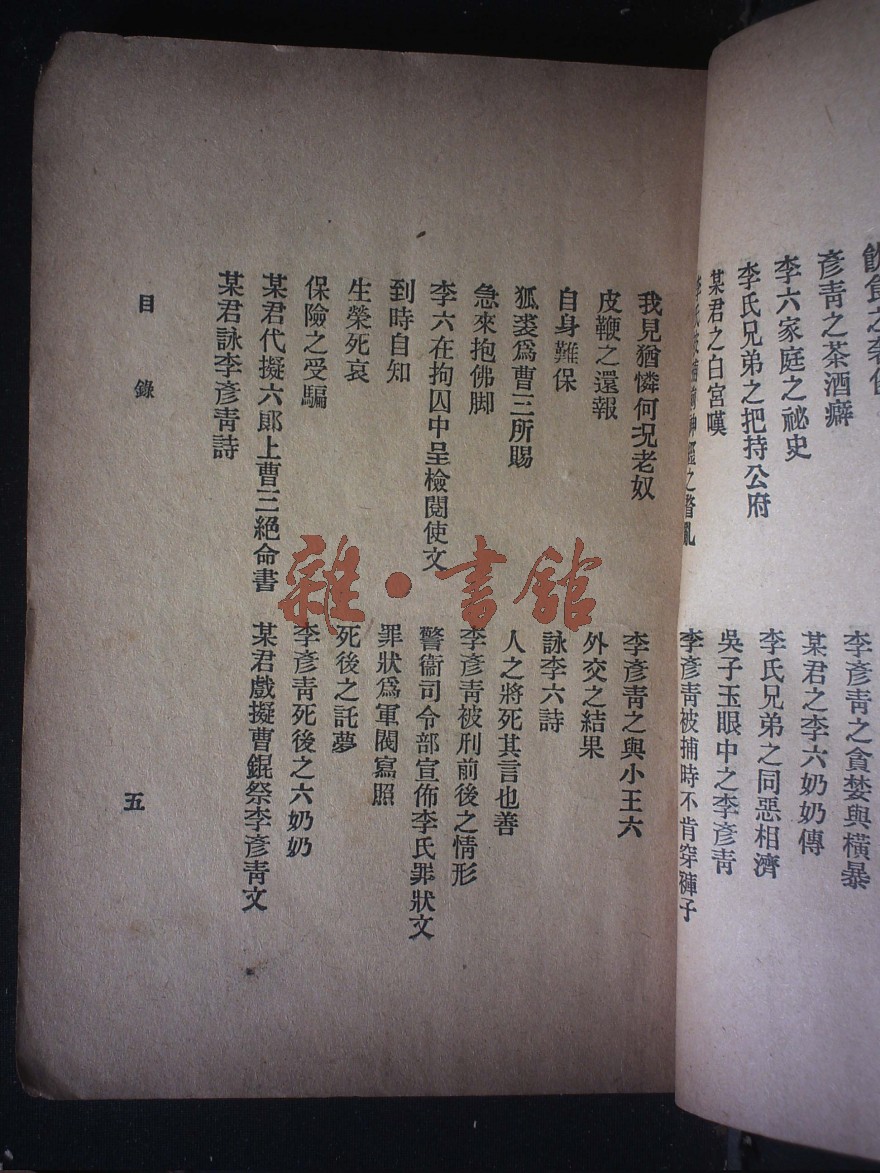 彥青之茶酒癖
李六家庭之祕史
李氏兄弟之把持公府
某君之白宮嘆
李彥青之貪婪與橫暴
某君之李六奶奶傳
李氏兄弟之同惡相濟
吳子玉眼中之李彥青
李彥青被捕時不肯穿褲子
我見猶憐何況老奴
皮鞭之還報
自身難保
狐裘爲曹三所賜
急來抱佛脚
李六在拘囚中呈檢閱使文
到時自知
生榮死哀
保險之受騙
某君代擬六郞上曹三絕命書
某君詠李彥青詩
李彥青之與小王六
外交之結果
詠李六詩
人之將死其言也善
李彥青被刑前後之情形
警衞司令部宣佈李氏罪狀文
罪狀爲軍閥寫照
死後之託夢
李彥青死後之六奶奶
某君戲擬曹錕祭李彥青文
目錄
五
雜·書館